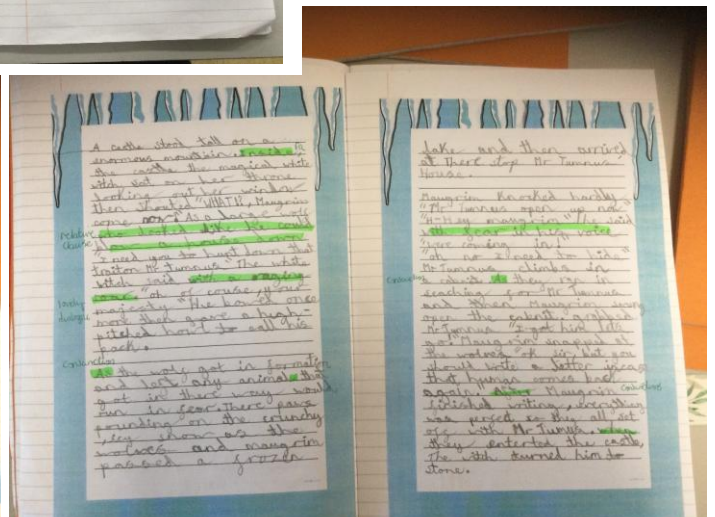 A castle stood tall on a
enormous mountain. Inside
the castle the magical white
witch sat on her throne
looking out her window
then shouted "WHAT!!, Maugrim
come now!" As a large wolf
Relative clause
who looked like he could
blow a house down
"I need you to hunt down that
traitor Mr Tumnus" The white
witch said with a raging
"oh course, your
dialogue
majesty" the bowed once
more then gave a high-
pitched howl to call his
pack.
Conjunction
As the wolf got in formation
and any animal that
got in there way would
run in fear. There paws
pounding on the crunchy
, icy snow as the
wolves and maugrim
passed a frozen
lake and then arrived
at there stop Mr Tumnus'
House.
Maugrim knocked hardly
"Mr Tumnus open up now"
"H-Hey maugrim" he said
with fear in his voice
"were coming in!"
"oh no I need to hide"
Mr Tumnus climbs in
a As they ran in
searching for Mr Tumnus
and then Maugrim swung
open the grabbed
Mr Tumnus "I got him lets
go." Maugrim snapped at
the wolves "ok sir but you
should write a letter incase
that comes back
again. After Maugrim
Conjunction
finished writing, everything
was perfect so they all set
off with Mr Tumus. when
they entered the castle,
The witch turned him to
stone.